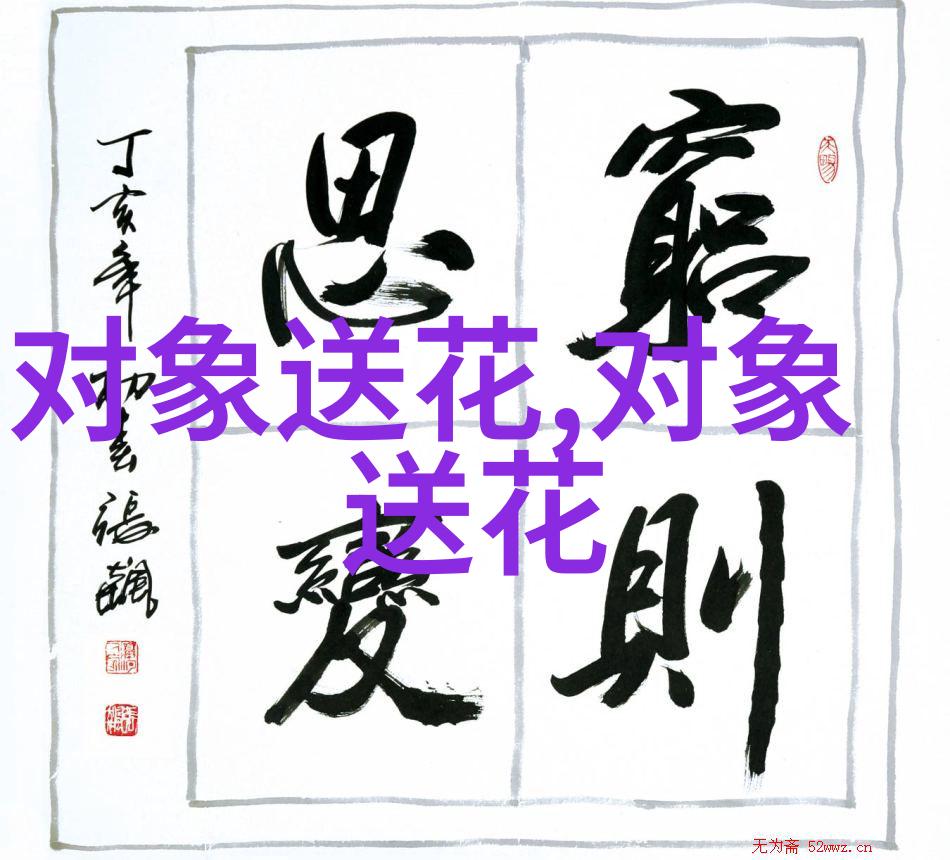 窮則
思變
丁亥年初春張飆
对象送花,对象
送花
无为斋 52wwz.cn